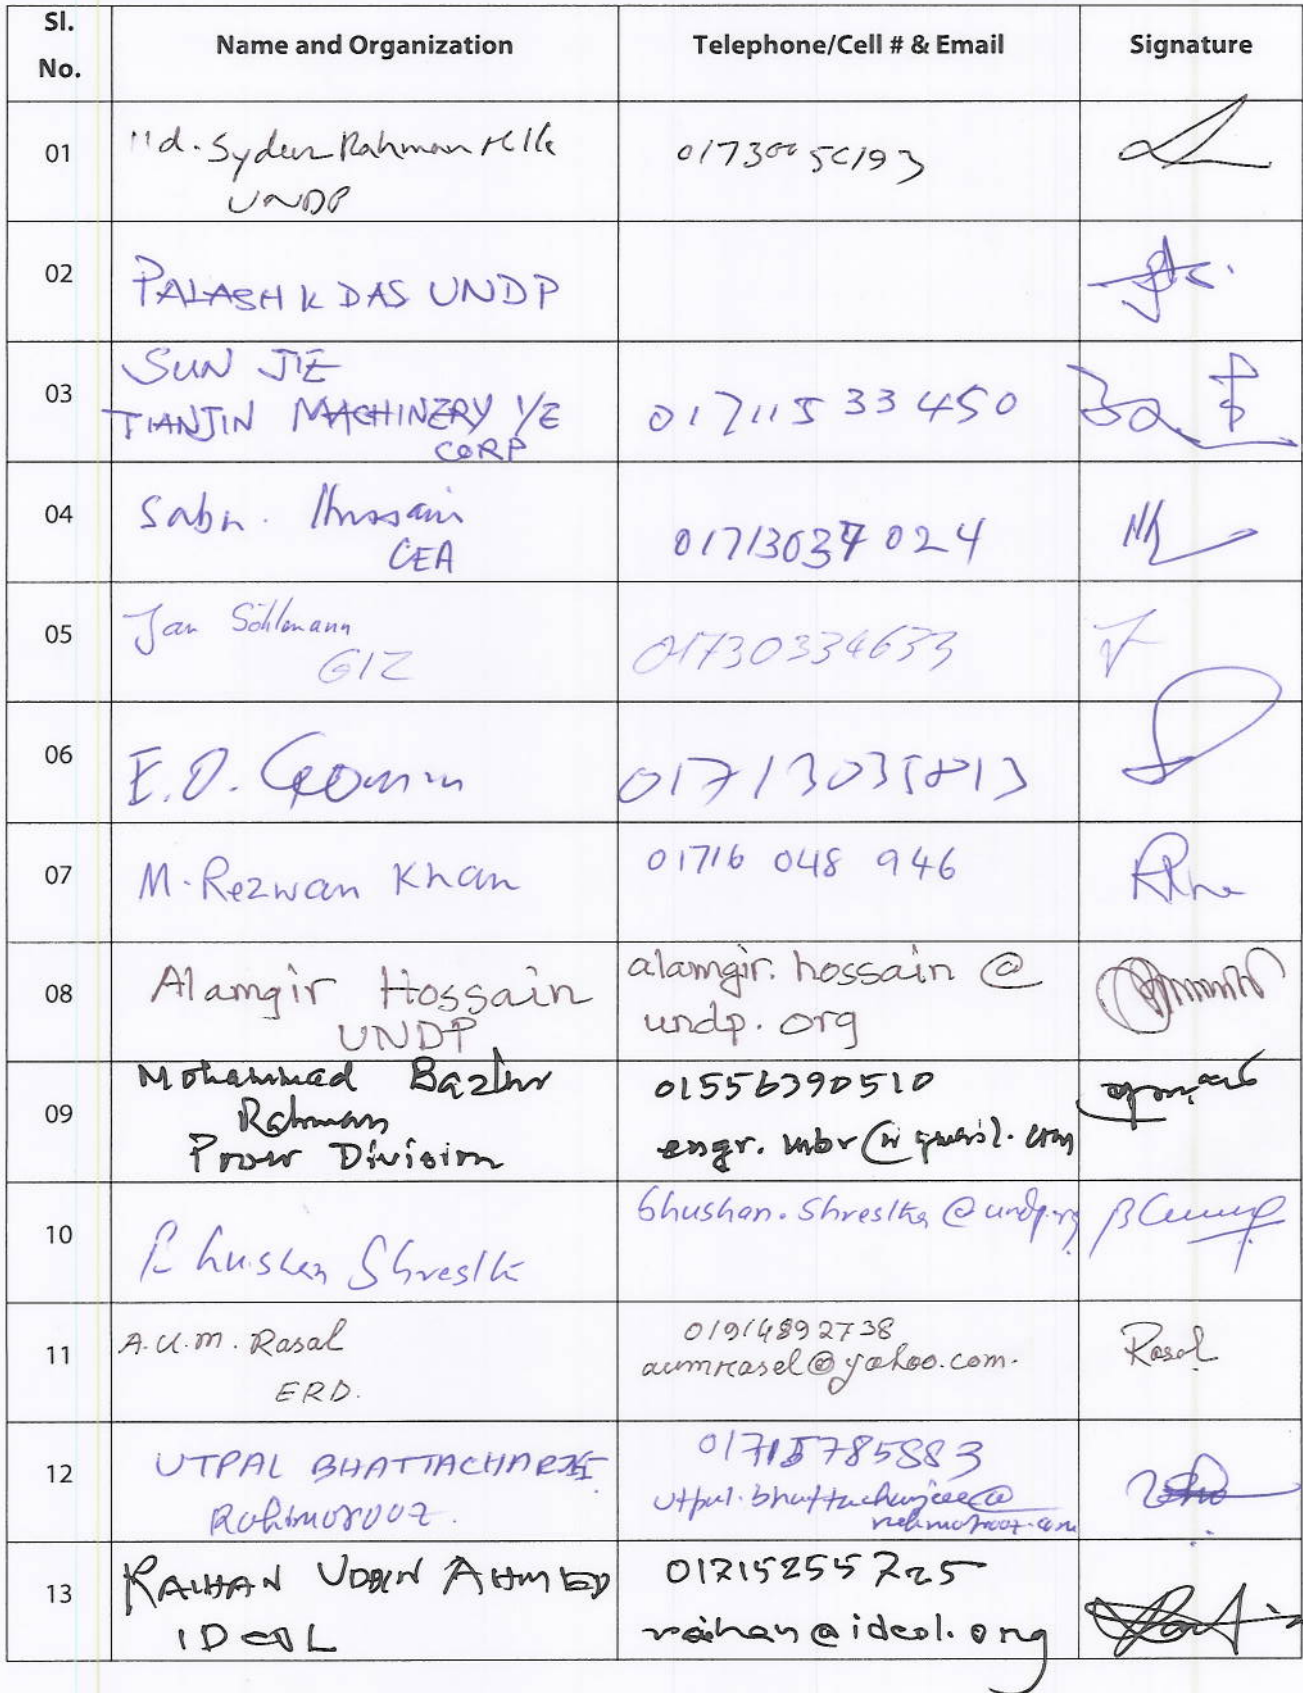 Sl.
No.
Name and Organization
Telephone/Cell # & Email
Signature
01
Md. Rahman
UNDP
02
PALASH K DAS UNDP
03
SUN JIE
TIANJIN MACHINERY I/E
CORP
01711533450
04
Hussain
CEA
01713037024
05
Jan
GIZ
01730334633
06
E.O.
07
M. Rezwan Khan
01716 048 946
08
Alamgir Hossain
UNDP
alamgir.hossain @
undp.org
09
Mohammad Bazlur
Rahman
Power Division
01556390510
engr.mbr@gmail.com
10
Bhushan Shrestha
bhushan.shrestha@undp.org
11
A.U.M. Rasal
ERD.
01914892738
aumrasel@yahoo.com.
Rasal
12
UTPAL BHATTACHARJEE
Rahimafrooz.
01715785883
utpal.bhattacharjee@
rahimafrooz.com
13
RAIHAN UDDIN AHMED
IDCOL
01715255725
raihan@idcol.org